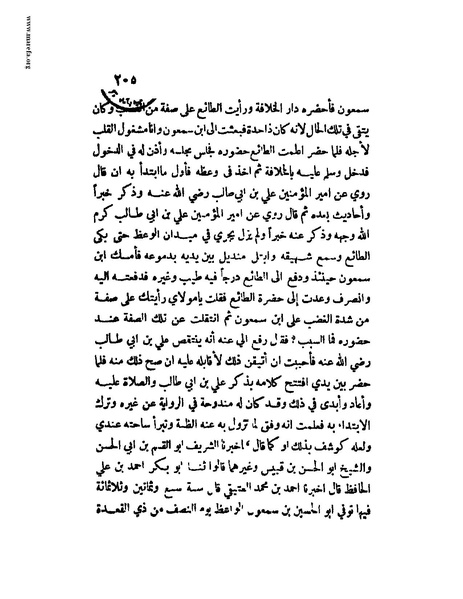 www.marefa.org
٢٠٥
سمعون فأحضره دار الخلافة ورأيت الطائع على صفة من الغضب وكان
يتقى في تلك الحال لانه كان ذا حدة فبعثت الى ابن سمعون وانا مشغول القلب
لأجله فلما حضر اعلمت الطائع حضوره فجلس مجلسه وأذن له في الدخول
فدخل وسلم عليه بالخلافة ثم اخذ في وعظه فأول ما ابتدأ به ان قال
روي عن امير المؤمنين علي بن ابي طالب رضي الله عنه وذكر خبراً
وأحاديث بعده ثم قال روي عن امير المؤمنين علي بن ابي طالب كرم
الله وجهه وذكر عنه خبراً ولم يزل يجري في ميدان الوعظ حتى بكى
الطائع وسمع شهيقه وابتل منديل بين يديه بدموعه فأمسك ابن
سمعون حينئذ ودفع الى الطائع درجاً فيه طيب وغيره فدفعته اليه
وانصرف وعدت إلى حضرة الطائع فقلت يامولاي رأيتك على صفة
من شدة الغضب على ابن سمعون ثم انتقلت عن تلك الصفة عند
حضوره فما السبب ؟ فقال رفع الي عنه أنه ينتقص علي بن ابي طالب
رضي الله عنه فأحببت ان أتيقن ذلك لأقابله عليه ان صح ذلك منه فلما
حضر بين يدي افتتح كلامه بذكر علي بن ابي طالب والصلاة عليه
وأعاد وأبدى في ذلك وقد كان له مندوحة في الرواية عن غيره وترك
الابتداء به فعلمت انه وفق لما تزول به عنه الظنة وتبرأ ساحته عندي
ولعله كوشف بذلك او كما قال ، اخبرنا الشريف ابو القسم بن ابي الحسن
والشيخ ابو الحسن بن قبيس وغيرهما قالوا ثنا ابو بكر احمد بن علي
الحافظ قال اخبرنا احمد بن محمد العتيقي قال سنة سبع وثمانين وثلاثمائة
فيها توفي ابو الحسين بن سمعون الواعظ يوم النصف من ذي القعدة